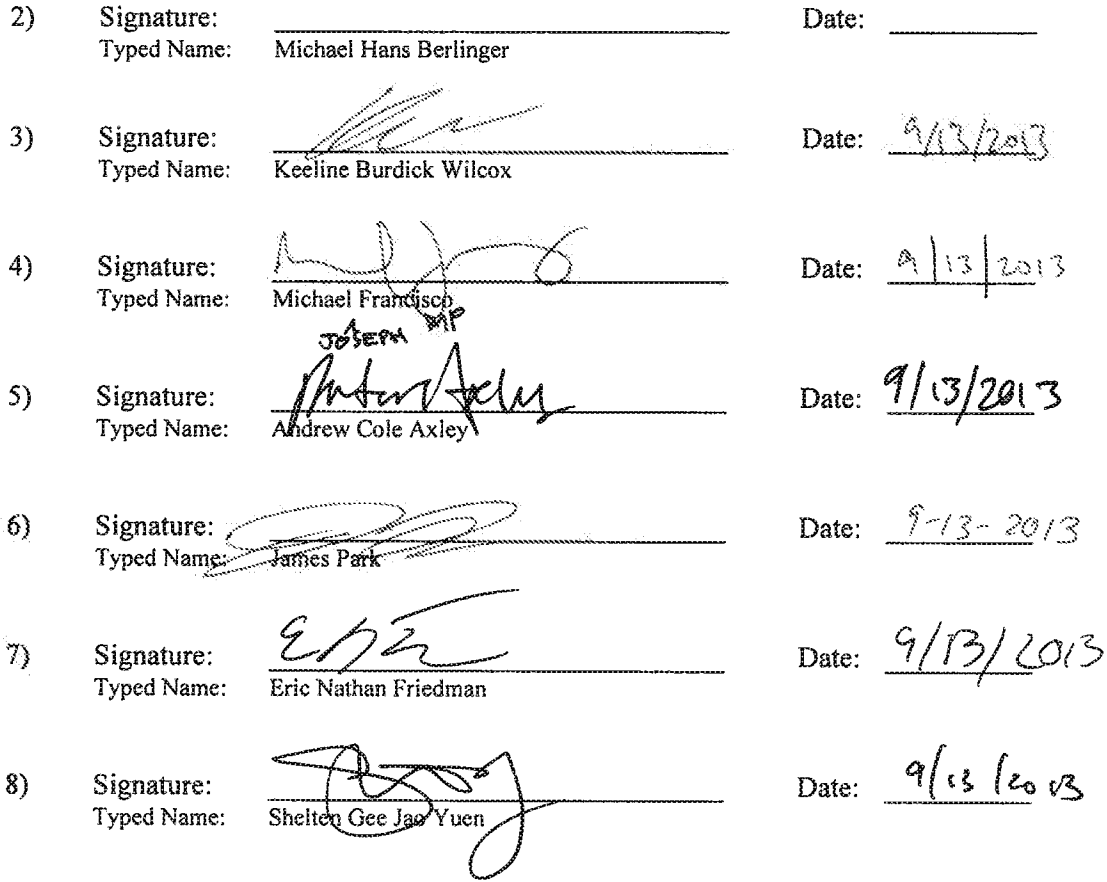 2) Signature: Date:
Typed Name: Michael Hans Berlinger
3) Signature: Date: 9/13/2013
Typed Name: Keeline Burdick Wilcox
4) Signature: Date: 9/13/2013
Typed Name: Michael Francisco
JOSEPH MP
5) Signature: Date: 9/13/2013
Typed Name: Andrew Cole Axley
6) Signature: Date: 9-13-2013
Typed Name: James Park
7) Signature: Date: 9/13/2013
Typed Name: Eric Nathan Friedman
8) Signature: Date: 9/13/2013
Typed Name: Shelten Gee Jao Yuen